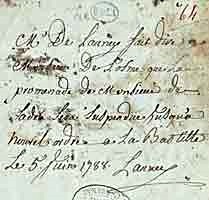 64
Mr. De Launey fait dire à
Monsieur De Losme que la
promenade de Monsieur de
Sade sera suspendue jusqu'à
nouvel ordre à La Bastille
Le 5. Juin 1788. Launey